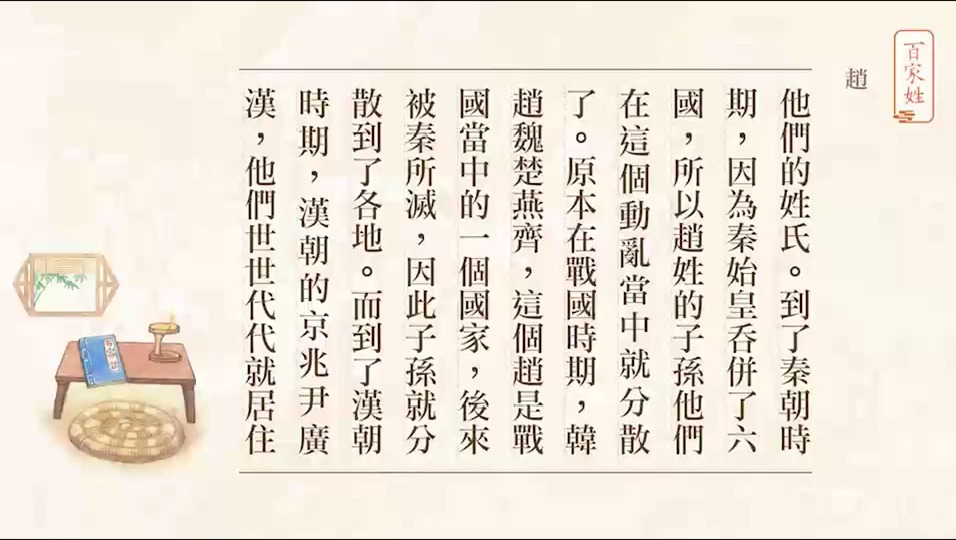 百家姓
趙
他們的姓氏。到了秦朝時
期，因為秦始皇吞併了六
國，所以趙姓的子孫他們
在這個動亂當中就分散
了。原本在戰國時期，韓
趙魏楚燕齊，這個趙是戰
國當中的一個國家，後來
被秦所滅，因此子孫就分
散到了各地。而到了漢朝
時期，漢朝的京兆尹廣
漢，他們世世代代就居住
百家姓